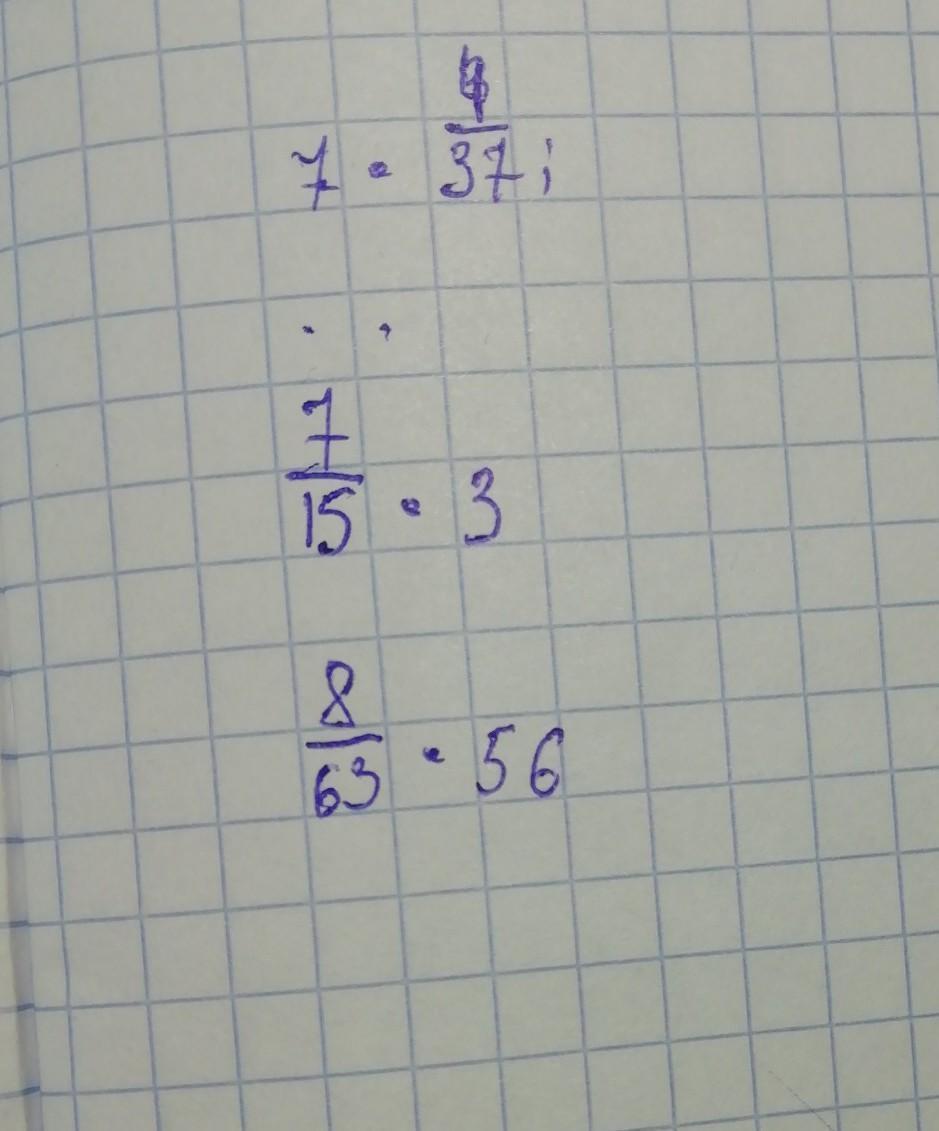 7 · /37;
7/15 · 3
8/63 · 56